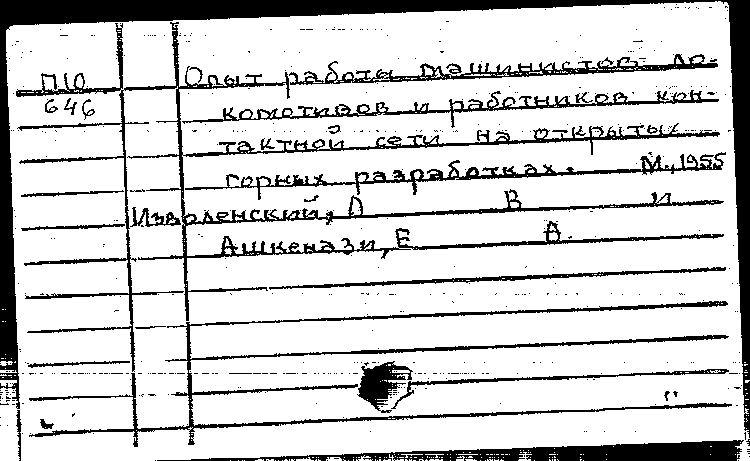 П10
646
Опыт работы машинистов ло-
комотивов и работников кон-
тактной сети на открытых
горных разработках. М., 1955
Изволенский, Л В и
Ашкенази, Е А.